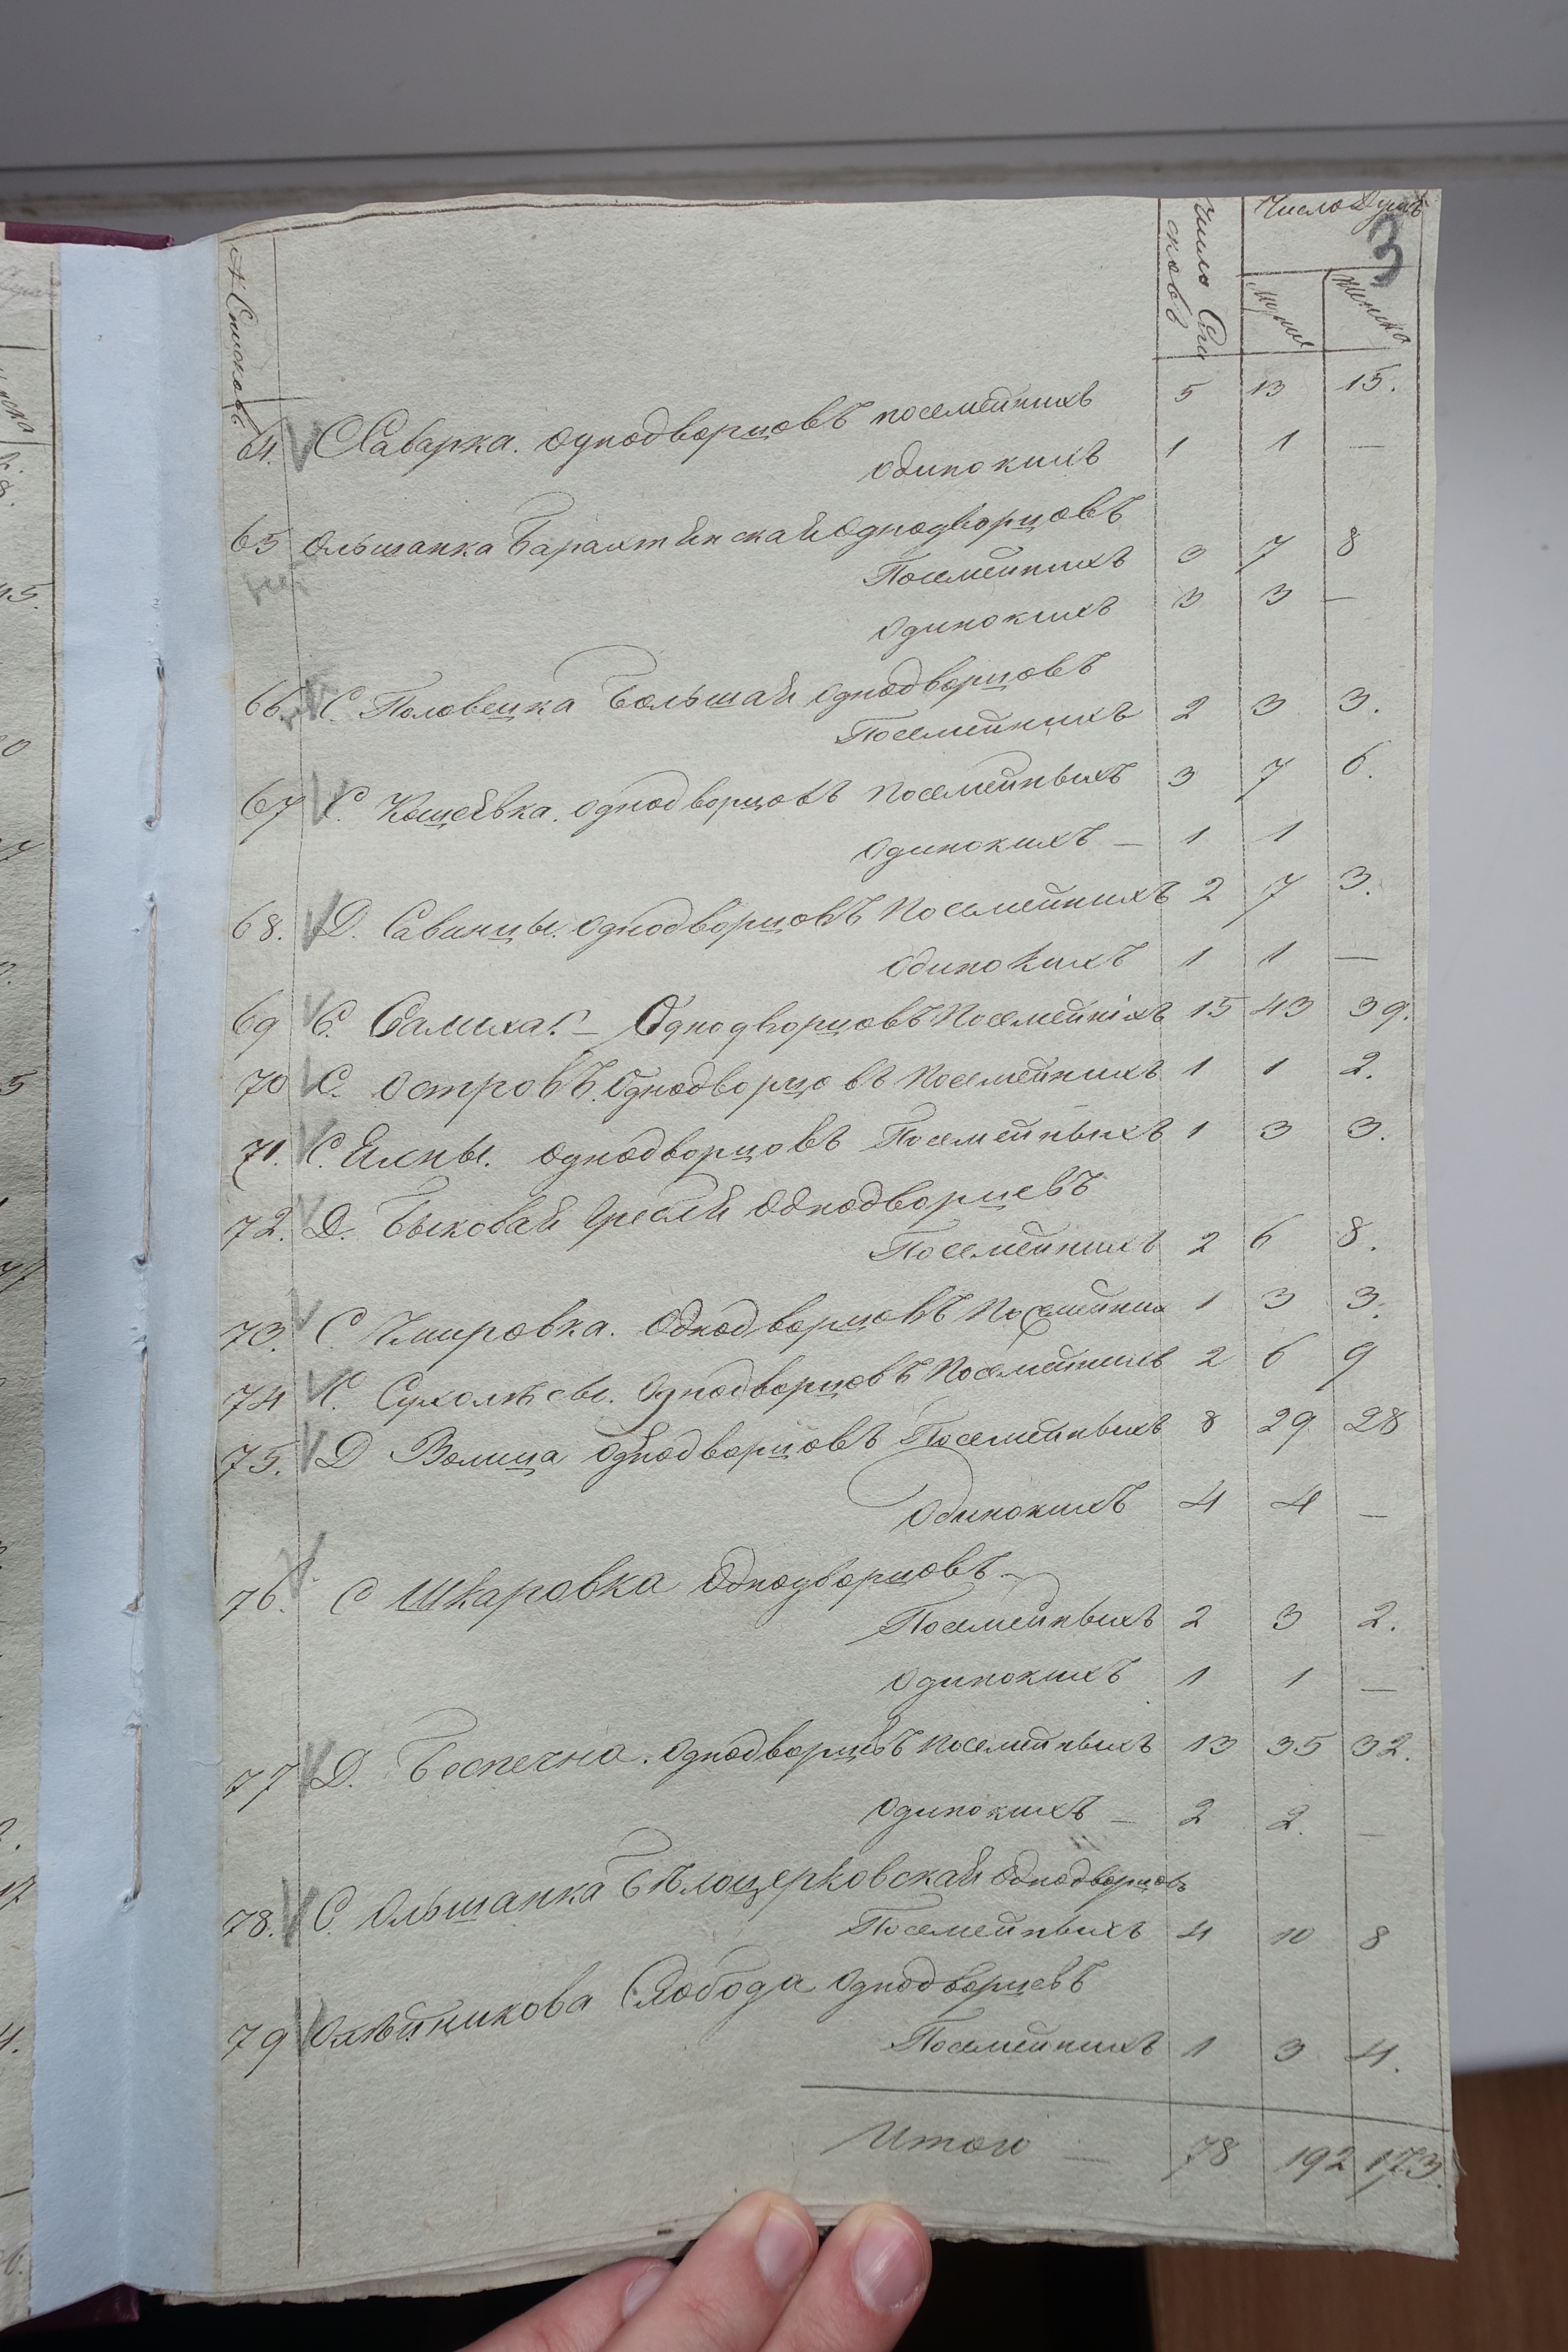 Число Душъ
3
№ Списковъ
Число Спи
сковъ
мужск
женска
64. С Саварка. однодворцовъ посемейнихъ 5 13 15.
одинокихъ 1 1 —
65 Ольшанка Барахтянскай однодворцовъ
Посемейнихъ 3 7 8
одинокихъ 3 3 —
66. С. Половецка Большай однодворцовъ
Посемейнихъ 2 3 3.
67 С. Кощеѣвка. однодворцовъ посемейныхъ 3 7 6.
одинокихъ — 1 1
68. Д. Савинцы. однодворцовъ Посемейнихъ 2 7 3.
одинокихъ 1 1 —
69 С. — Однодворцовъ Посемейніхъ 15 43 39.
70 С. Островъ. Однодворцовъ посемейнихъ 1 1 2.
71. С. однодворцовъ Посемейныхъ 1 3 3.
72. Д. Быковай Гребли однодворцевъ
Посемейнихъ 2 6 8.
73. С. однодворцовъ Посемейних 1 3 3.
74 С. Сухолѣсы. Однодворцовъ Посемейнихъ 2 6 9
75. Д Волица однодворцовъ Посемейныхъ 8 29 28
Одинокихъ 4 4 —
76. С Шкаровка Однодворцовъ —
Посемейныхъ 2 3 2.
одинокихъ 1 1 —
77 Д. Беспечна. Однодворцевъ посемейныхъ 13 35 32.
одинокихъ — 2 2. —
78. С. Ольшанка Бѣлоцерковскай Однодворцовъ
Посемейныхъ 4 10 8
79 Олѣйникова Слобода однодворцевъ
Посемейнихъ 1 3 4.
Итого — 78 192 173.